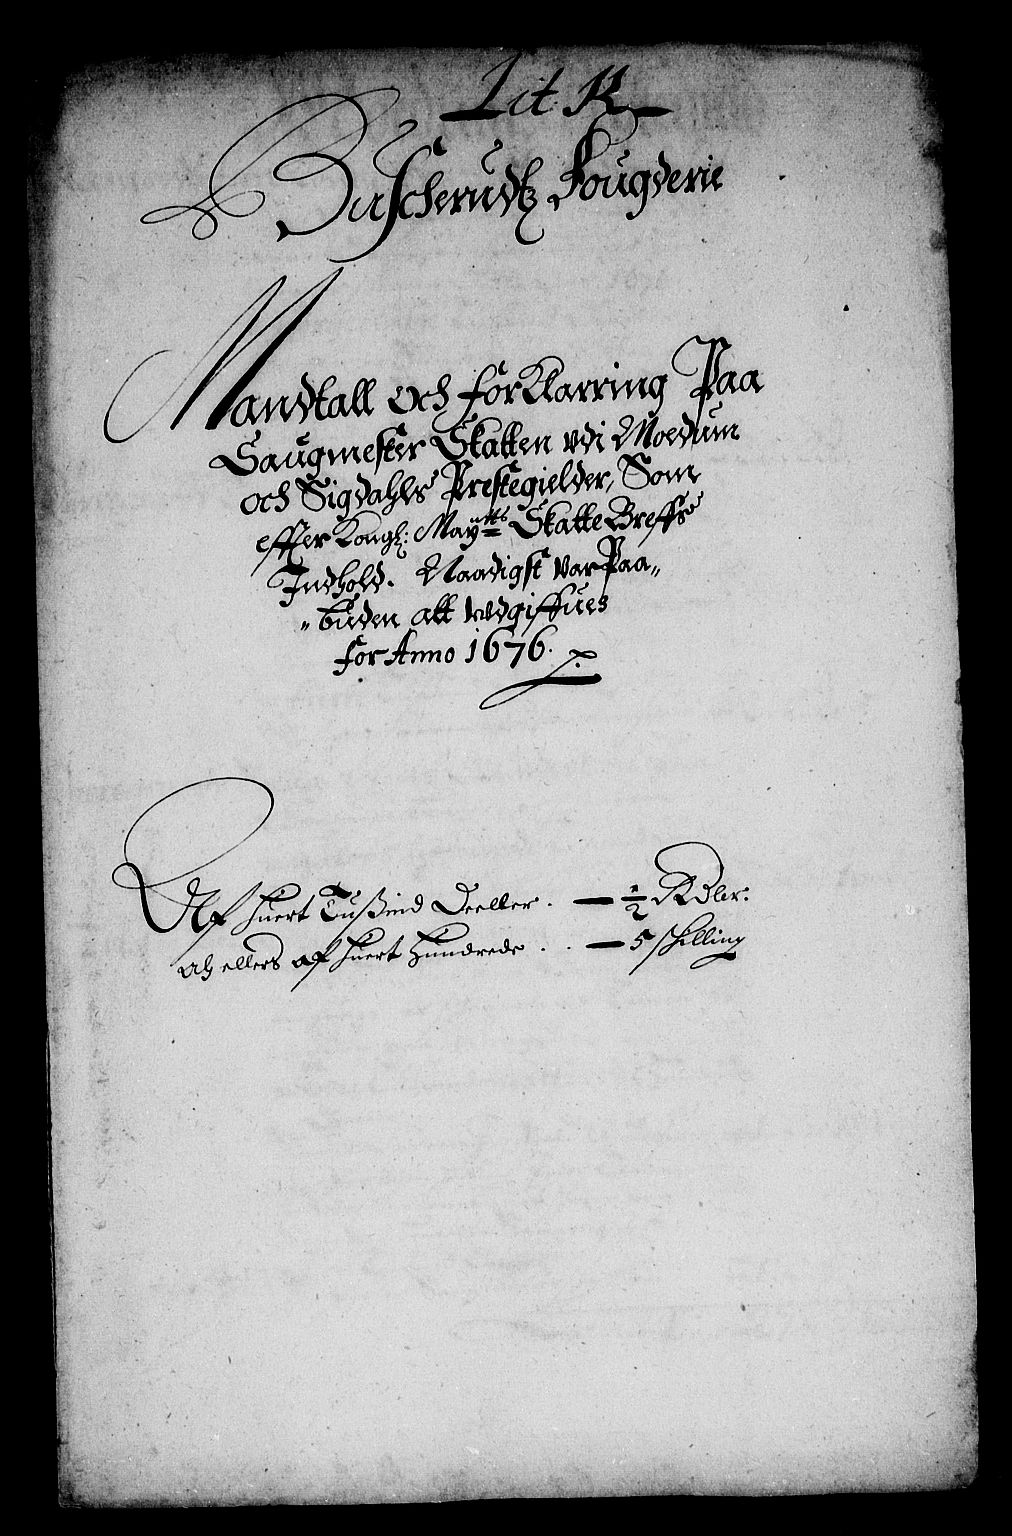 Lit. R
Buscherudtz Fougderie
Mandtall och forKlarring Paa
Saugmester Skatten vdi Moedum
och Sigdahls Prestegielder, Som
effter Kongl: Maÿtts Skatte Breffs
Indhold. Naadigst var Paa„
„buden att wdgiffues
for Anno 1676.
Af huert Tußind Deeller. — ½ RDler:
Och ellers af huert Hundrede . . — 5 skilling